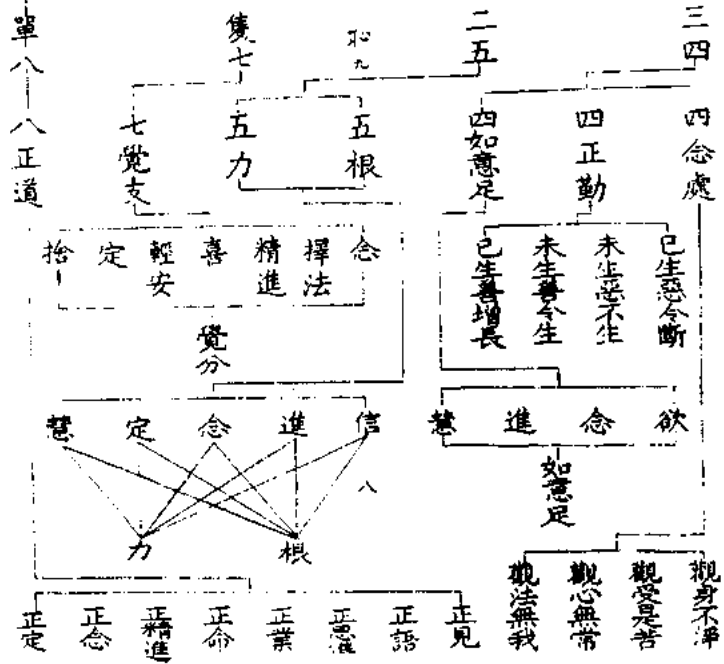 三四
二五
恥九
隻七
單八
四念處
四正勤
四如意足
五根
五力
七覺支
八正道
已生惡令斷
未生惡不生
未生善令生
已生善增長
念
擇法
精進
喜
輕安
定
捨
覺分
欲
念
進
慧
如意足
信
進
念
定
慧
八
根
力
觀身不淨
觀受是苦
觀心無常
觀法無我
正見
正語
正思惟
正業
正命
正精進
正念
正定